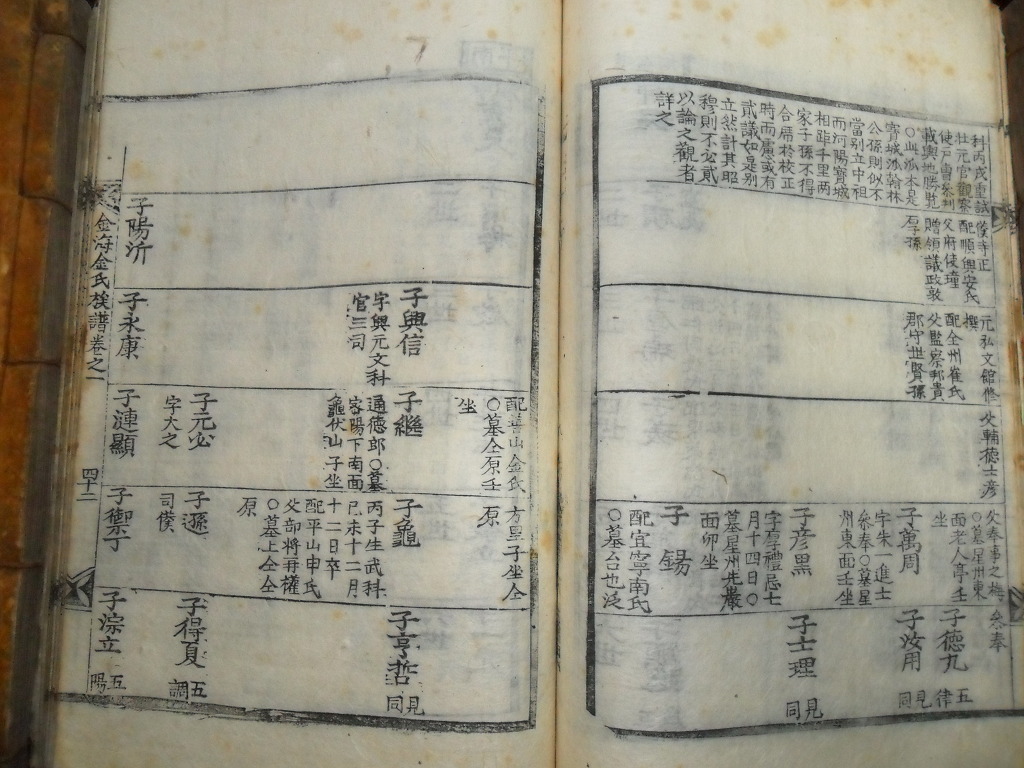 科丙戌重試
壯元官觀察
使戶曹參判
載輿地勝覽
○此派本是
寶城派翰林
公孫則似不
當别立中祖
而河陽寶城
相距千里两
家子孫不得
合席於校正
時而處或有
貳議如是别
立然計其昭
穆則不必貳
以論之觀者
詳之
寺正
配順興安氏
父府使瑾
贈領議政敦
厚孫
元弘文館修
撰
配全州崔氏
父監察邦貴
郡守世賢孫
父輔德士彦
父奉事之梅
○墓星州東
面老人亭壬
坐
子萬周
字朱一進士
參奉○墓星
州東面壬坐
子彦黑
字厚禮忌七
月十四日○
墓星州先巖
面卯坐
子錫
配宜寧南氏
○墓台也泛
參奉
子德九
五律
子汝用
見同
子士理
見同
子興信
字興元文科
官三司
配善山金氏
○墓仝原壬
坐
子繼
通德郎○墓
家陽下南面
龜伏山子坐
方里子坐仝
原
子龜
丙子生武科
己未十二月
十一日卒
配平山申氏
父部將再權
○墓上仝仝
原
子亨哲
見同
子元必
字大之
子遜
司僕
子得夏
五調
子陽沂
子永康
子漣顯
子禦丁
子淙立
五陽
金海金氏族譜卷之一
四十二